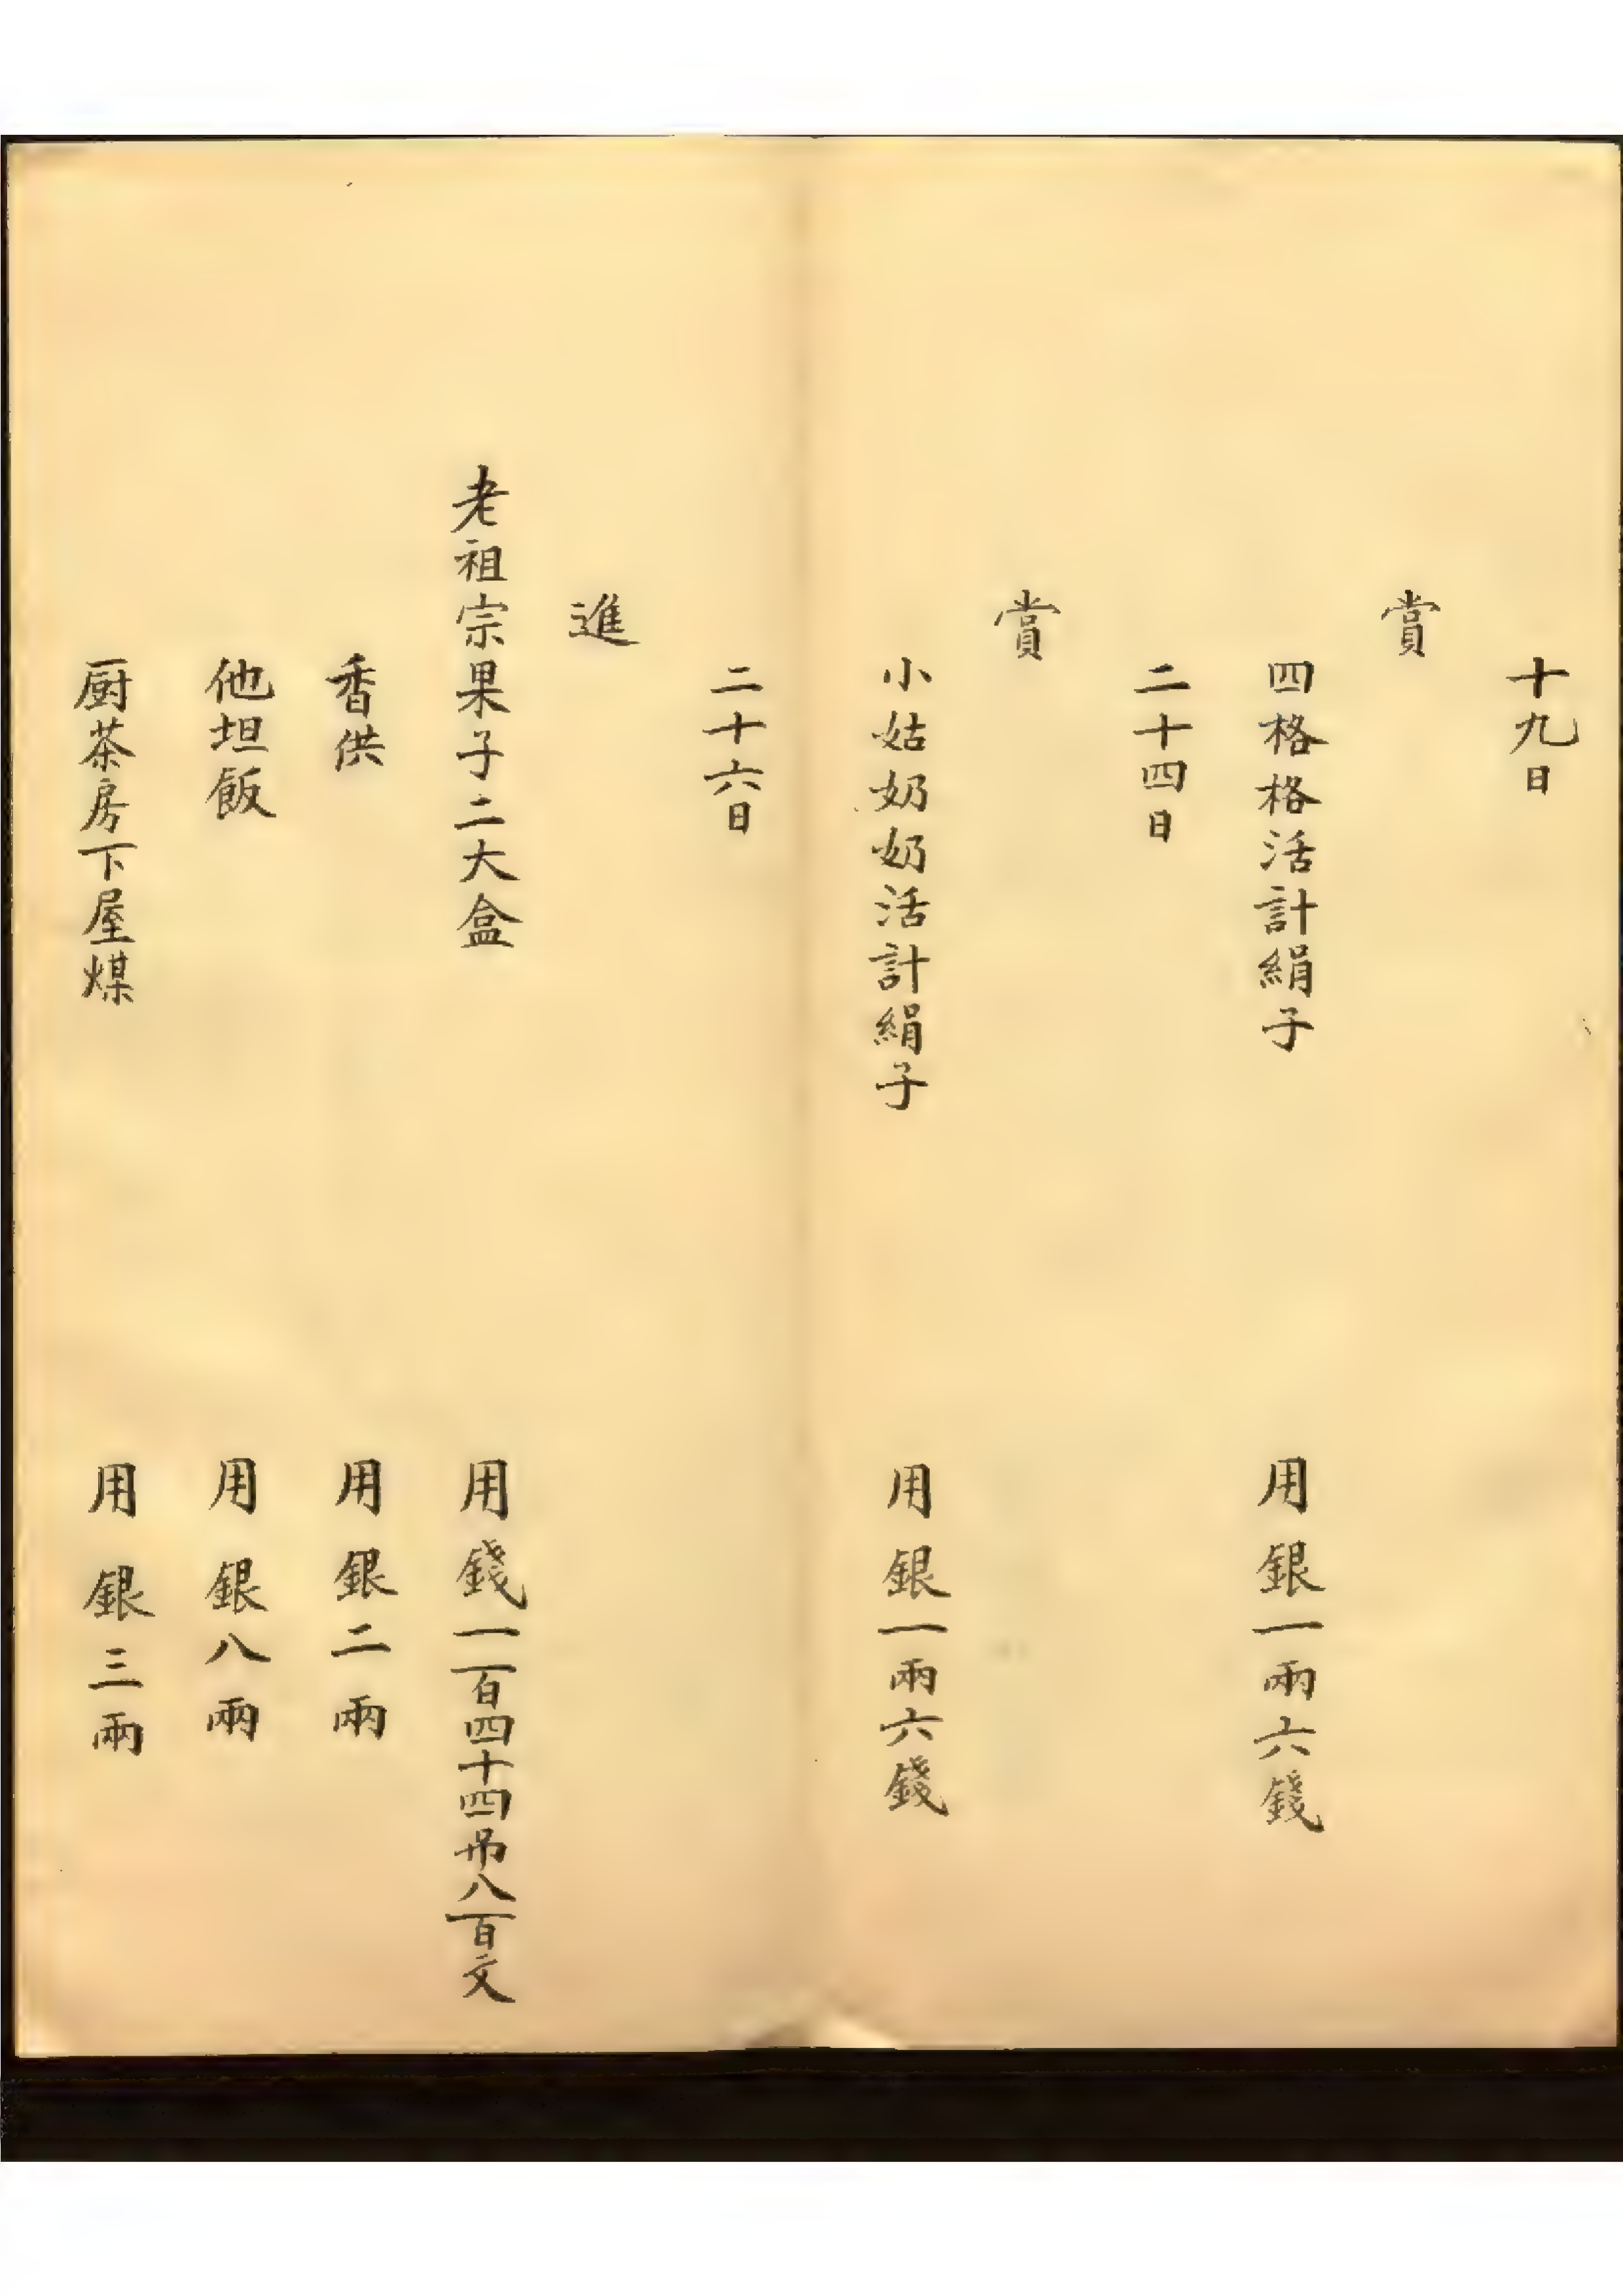 十九日
賞
四格格活計絹子 用銀一兩六錢
二十四日
賞
小姑奶奶活計絹子 用銀一兩六錢
二十六日
進
老祖宗果子二大盒 用錢一百四十四吊八百文
香供 用銀二兩
他坦飯 用銀八兩
厨茶房下屋煤 用銀三兩